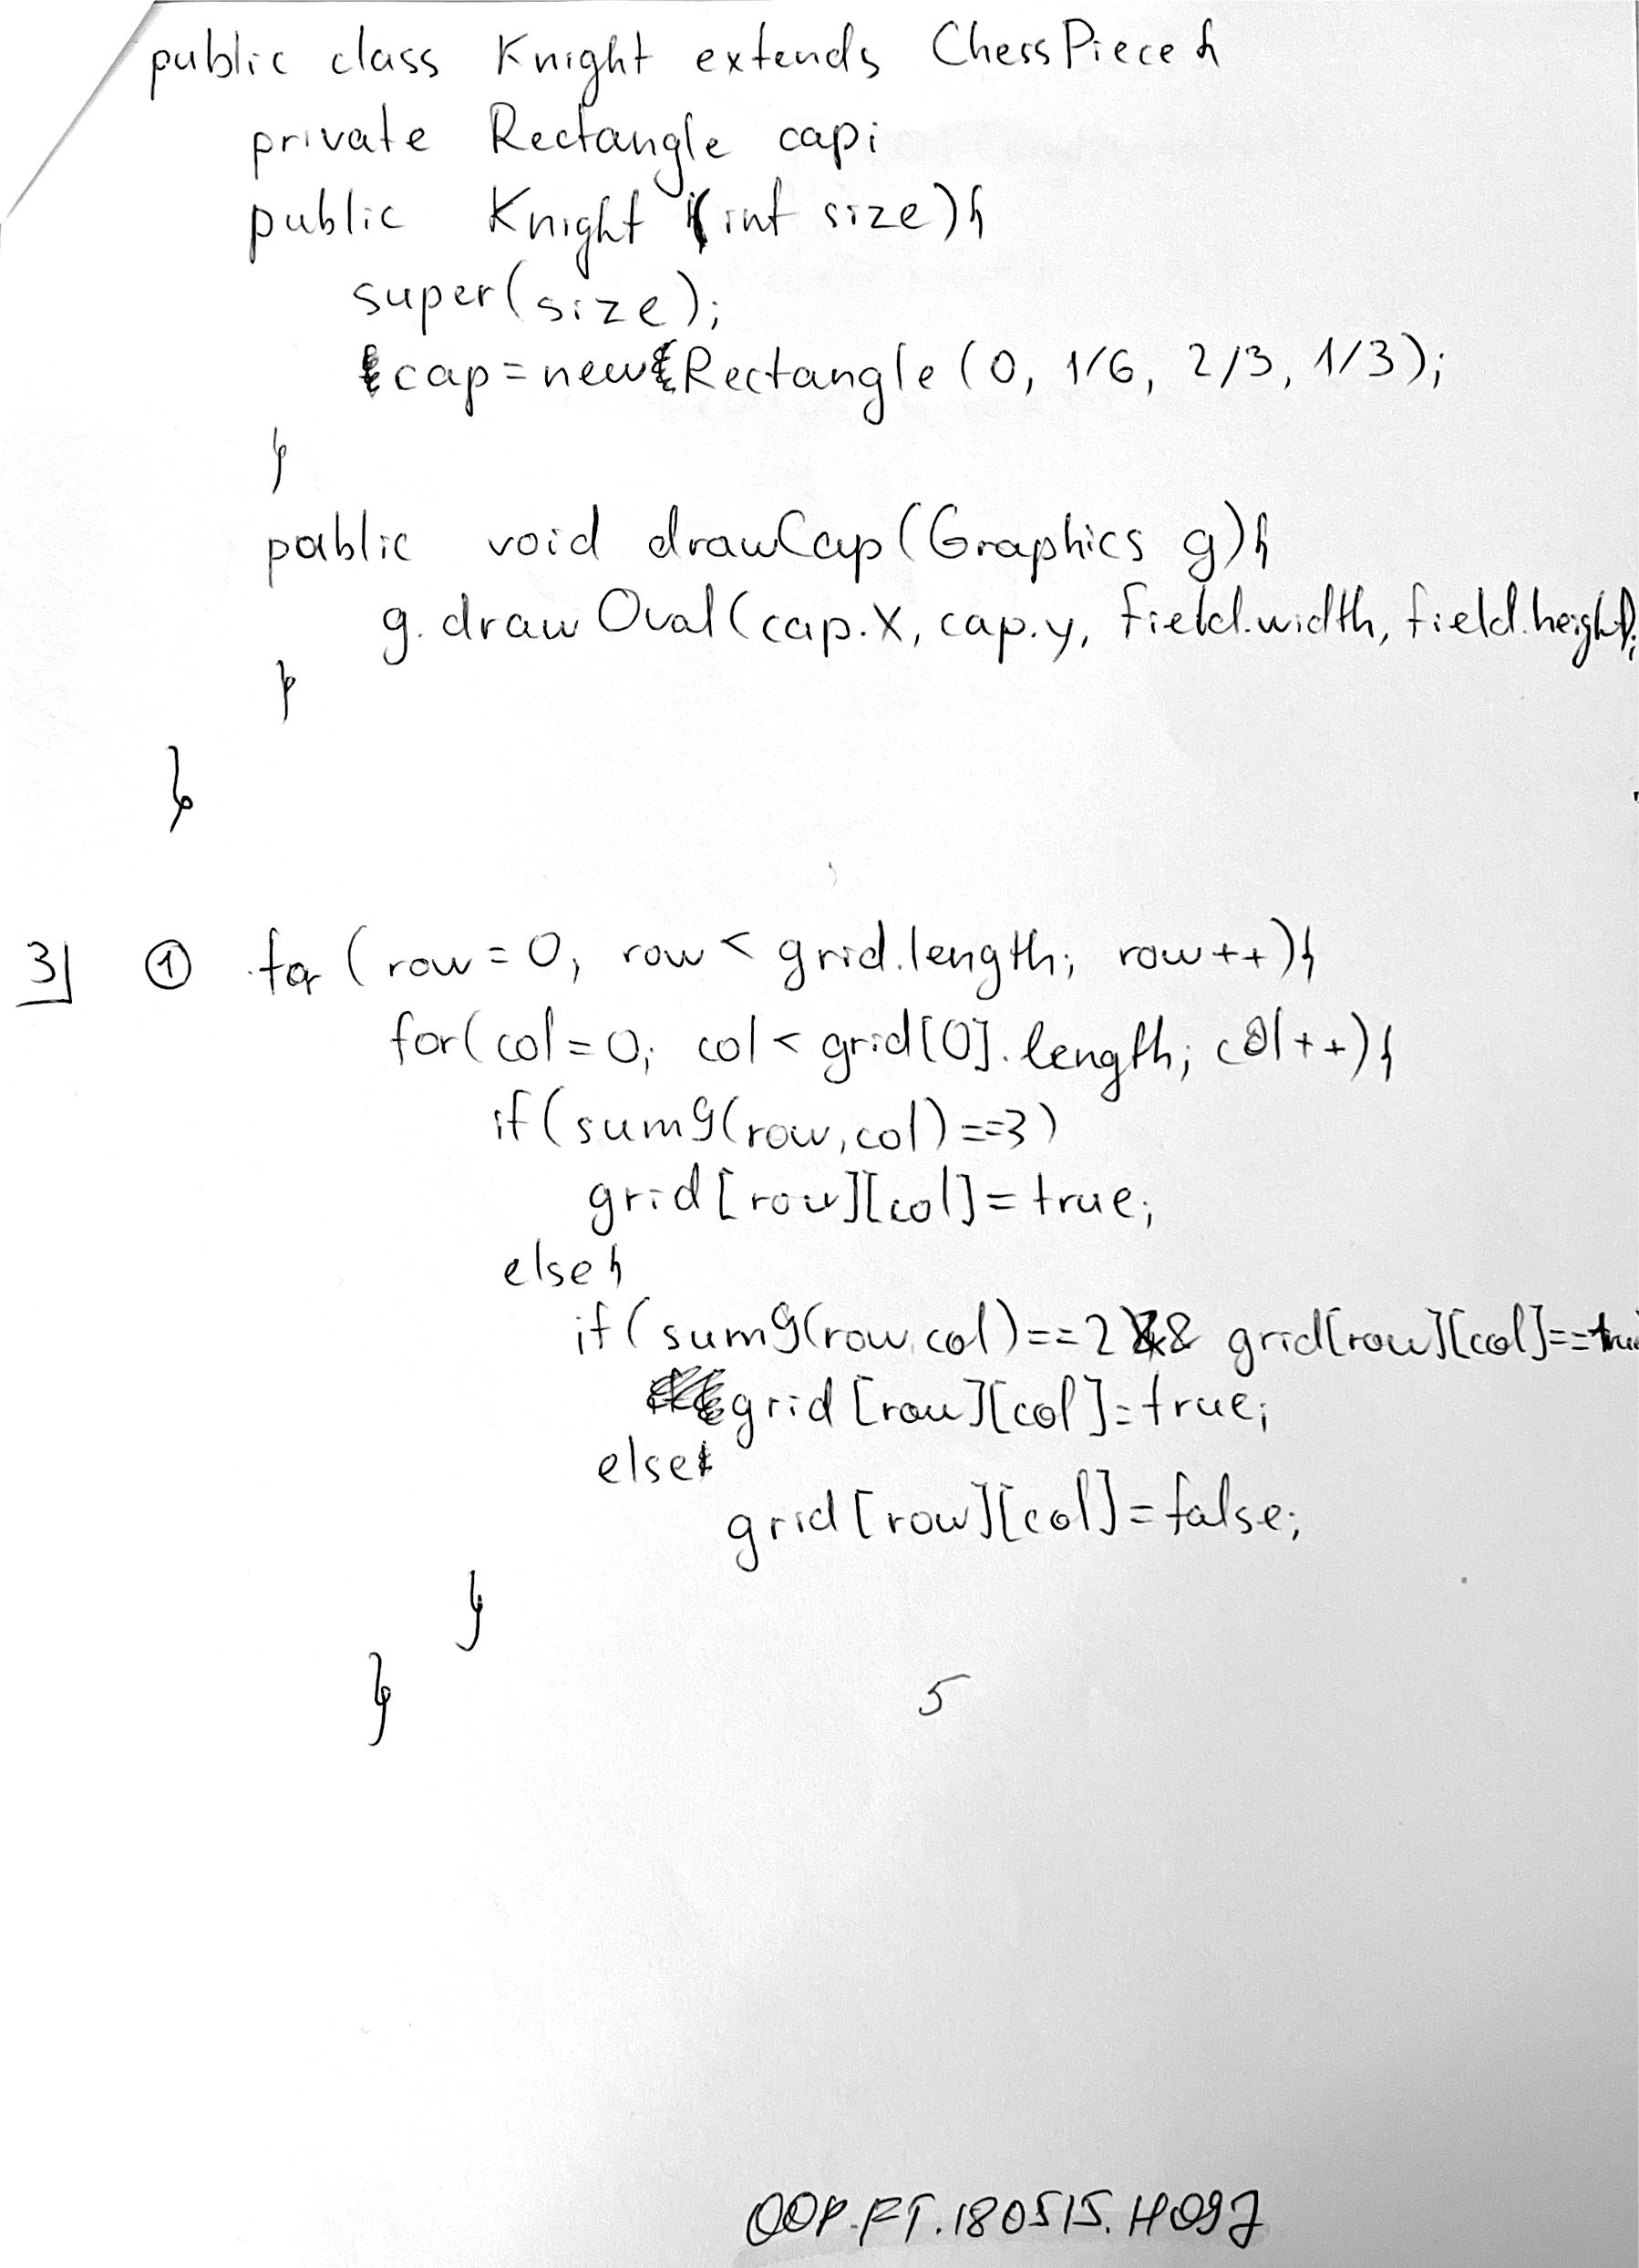 public class Knight extends ChessPiece {
private Rectangle cap;
public Knight (int size){
super(size);
cap=new Rectangle (0, 1/6, 2/3, 1/3);
}
public void drawCap(Graphics g){
g.drawOval(cap.x, cap.y, field.width, field.height);
}
}
3] ① for (row=0, row< grid.length; row++){
for(col=0; col< grid[0].length; col++){
if(sum9(row,col)==3)
grid[row][col]=true;
else{
if(sum9(row,col)==2 && grid[row][col]==true
grid[row][col]=true;
else
grid[row][col]=false;
}
}
5
OOP.FT.180515.H097